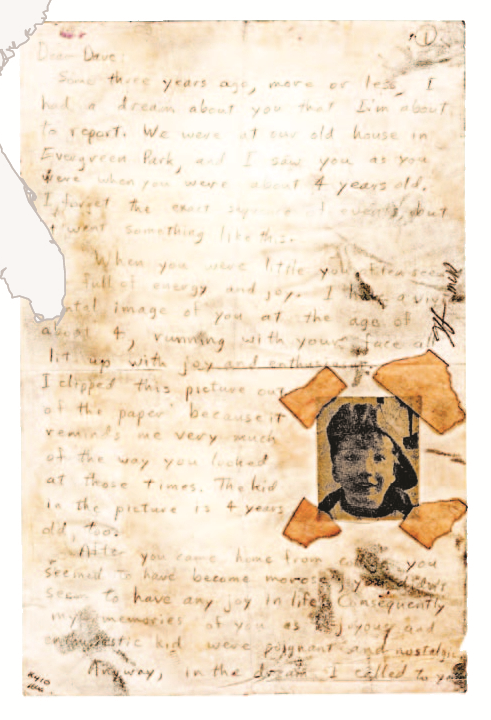 1
Dear Dave:
Some three years ago, more or less, I
had a dream about you that I'm about
to report. We were at our old house in
Evergreen Park, and I saw you as you
were when you were about 4 years old.
I forget the exact of events, but
it went something like this.
When you were little you
full of energy and joy. I have a
image of you at the age of
about 4, running with your face
lit up with joy and enthusiasm.
I clipped this picture out
of the paper because it
reminds me very much
of the way you looked
at those times. The kid
in the picture is 4 years
old, too.
After you came home from you
seemed to have become morose, you
seem to have any joy in life. Consequently
my memories of you as joyous and
enthusiastic kid were poignant and nostalgic.
Anyway, in the dream I called to you